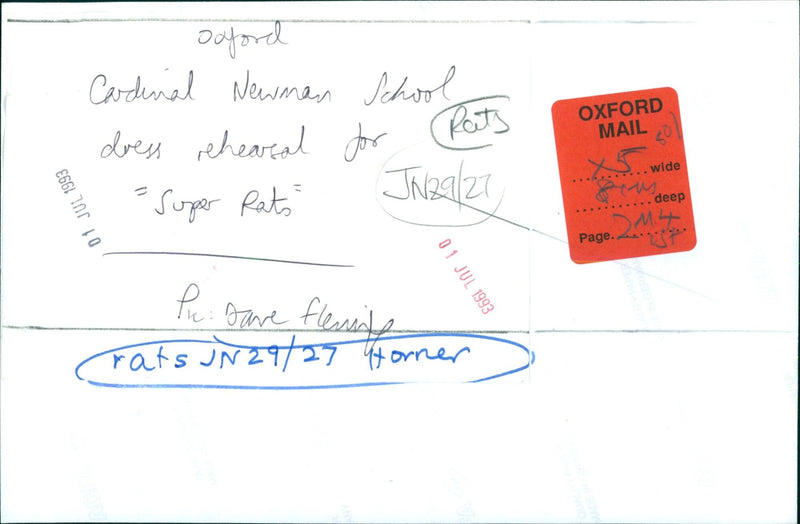 Oxford
Cardinal Newman School
dress rehearsal for
"Super Rats"
Rats
JN29/27
01 JUL 1993
01 JUL 1993
Pic: Dave Fleming
rats JN29/27 Horner
OXFORD
MAIL
x5 wide
8cms deep
Page 2M4
1st